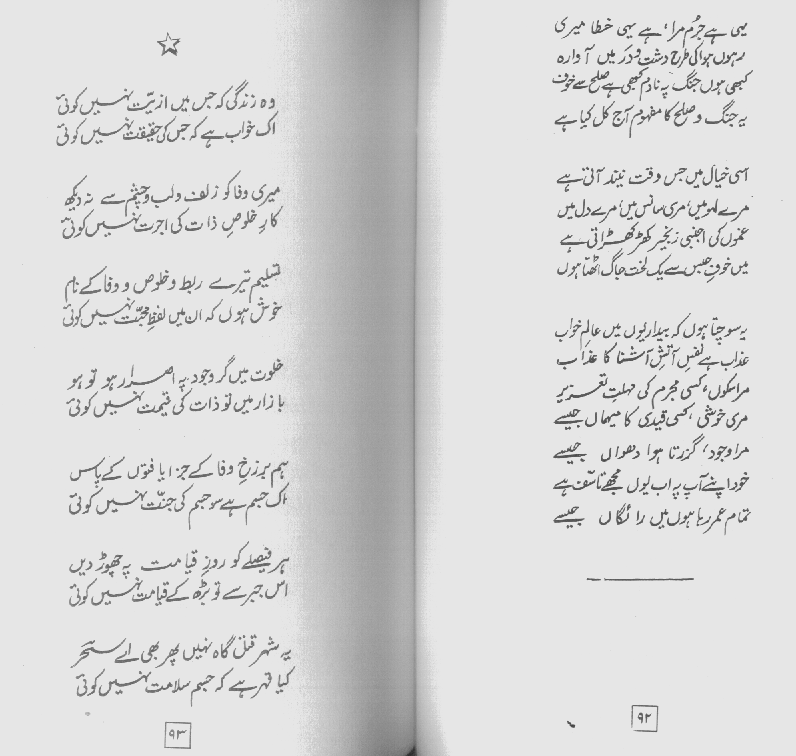 یہی ہے جرم مرا، ہے یہی خطا میری
رہوں ہوا کی طرح دشت و در میں آوارہ
کبھی ہوں جنگ پہ نادم کبھی ہے صلح سے خوف
یہ جنگ و صلح کا مفہوم آج کل کیا ہے
اسی خیال میں جس وقت نیند آتی ہے
مرے لہو میں، مری سانس میں، مرے دل میں
غموں کی اجنبی زنجیر کھڑکھڑاتی ہے
میں خوفِ حبس سے یک لخت جاگ اٹھتا ہوں
یہ سوچتا ہوں کہ بیداریوں میں عالمِ خواب
عذاب ہے نفسِ آتش آشنا کا عذاب
مرا سکوں، کسی مجرم کی مہلتِ تعزیر
مری خوشی، کسی قیدی کا میہماں جیسے
مرا وجود، گزرتا ہوا دھواں جیسے
خود اپنے آپ پہ اب یوں مجھے تاسّف ہے
تمام عمر رہا ہوں میں رائگاں جیسے
۹۲
وہ زندگی کہ جس میں اذیّت نہیں کوئی
اک خواب ہے کہ جس کی حقیقت نہیں کوئی
میری وفا کو زلف و لب و چشم سے نہ دیکھ
کارِ خلوصِ ذات کی اجرت نہیں کوئی
تسلیم تیرے ربط و خلوص و وفا کے نام
خوش ہوں کہ ان میں لفظِ محبّت نہیں کوئی
خلوت میں گر وجود پہ اصرار ہو تو ہو
بازار میں تو ذات کی قیمت نہیں کوئی
ہم برزخِ وفا کے جزا یافتوں کے پاس
اک جسم ہے سو جسم کی جنّت نہیں کوئی
ہر فیصلے کو روزِ قیامت پہ چھوڑ دیں
اس جبر سے تو بڑھ کے قیامت نہیں کوئی
یہ شہر قتل گاہ نہیں پھر بھی اے سحر
کیا قہر ہے کہ جسم سلامت نہیں کوئی
۹۳